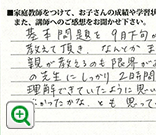 ■家庭教師をつけて、お子さんの成績や学習状
また、講師へのご感想をお聞かせ下さい。
基本問題を9月下旬か
教えて頂き、なんとか
親が教えるのも限界が
の先生にしっかり2時間
理解できていたように思い
よかったかな、とも思って